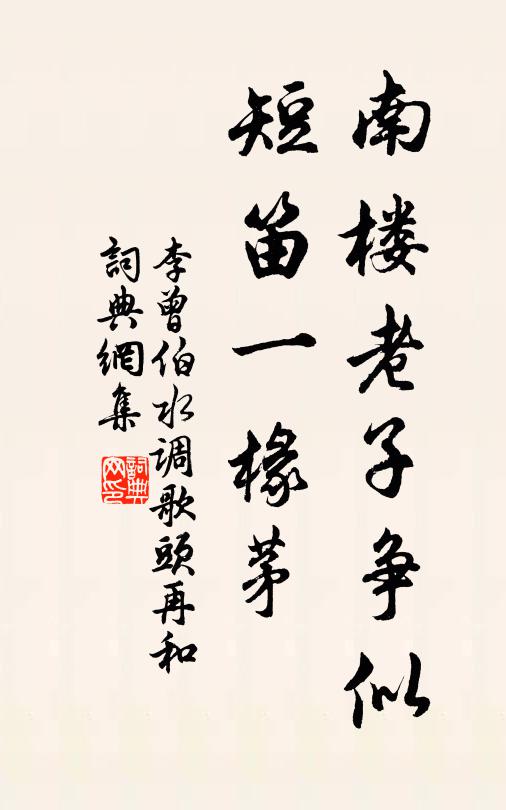 南楼老子争似
短笛一椽茅
李曾伯水调歌頭再和
詞典網集
詞典
网印